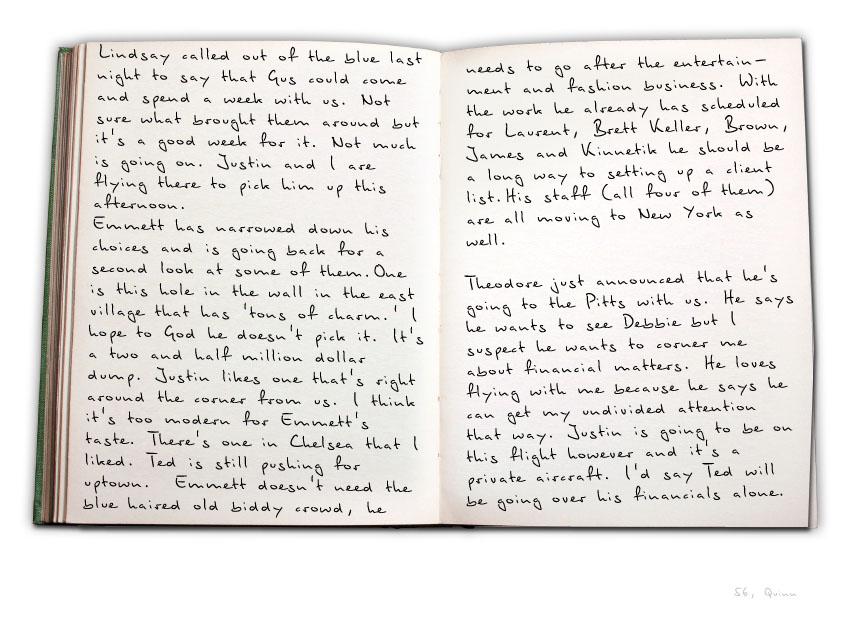 Lindsay called out of the blue last
night to say that Gus could come
and spend a week with us. Not
sure what brought them around but
it's a good week for it. Not much
is going on. Justin and I are
flying there to pick him up this
afternoon.
Emmett has narrowed down his
choices and is going back for a
second look at some of them. One
is this hole in the wall in the east
village that has 'tons of charm.' I
hope to God he doesn't pick it. It's
a two and half million dollar
dump. Justin likes one that's right
around the corner from us. I think
it's too modern for Emmett's
taste. There's one in Chelsea that I
liked. Ted is still pushing for
uptown. Emmett doesn't need the
blue haired old biddy crowd, he
needs to go after the entertain-
ment and fashion business. With
the work he already has scheduled
for Laurent, Brett Keller, Brown,
James and Kinnetik he should be
a long way to setting up a client
list. His staff (all four of them)
are all moving to New York as
well.
Theodore just announced that he's
going to the Pitts with us. He says
he wants to see Debbie but I
suspect he wants to corner me
about financial matters. He loves
flying with me because he says he
can get my undivided attention
that way. Justin is going to be on
this flight however and it's a
private aircraft. I'd say Ted will
be going over his financials alone.
56, Quinn